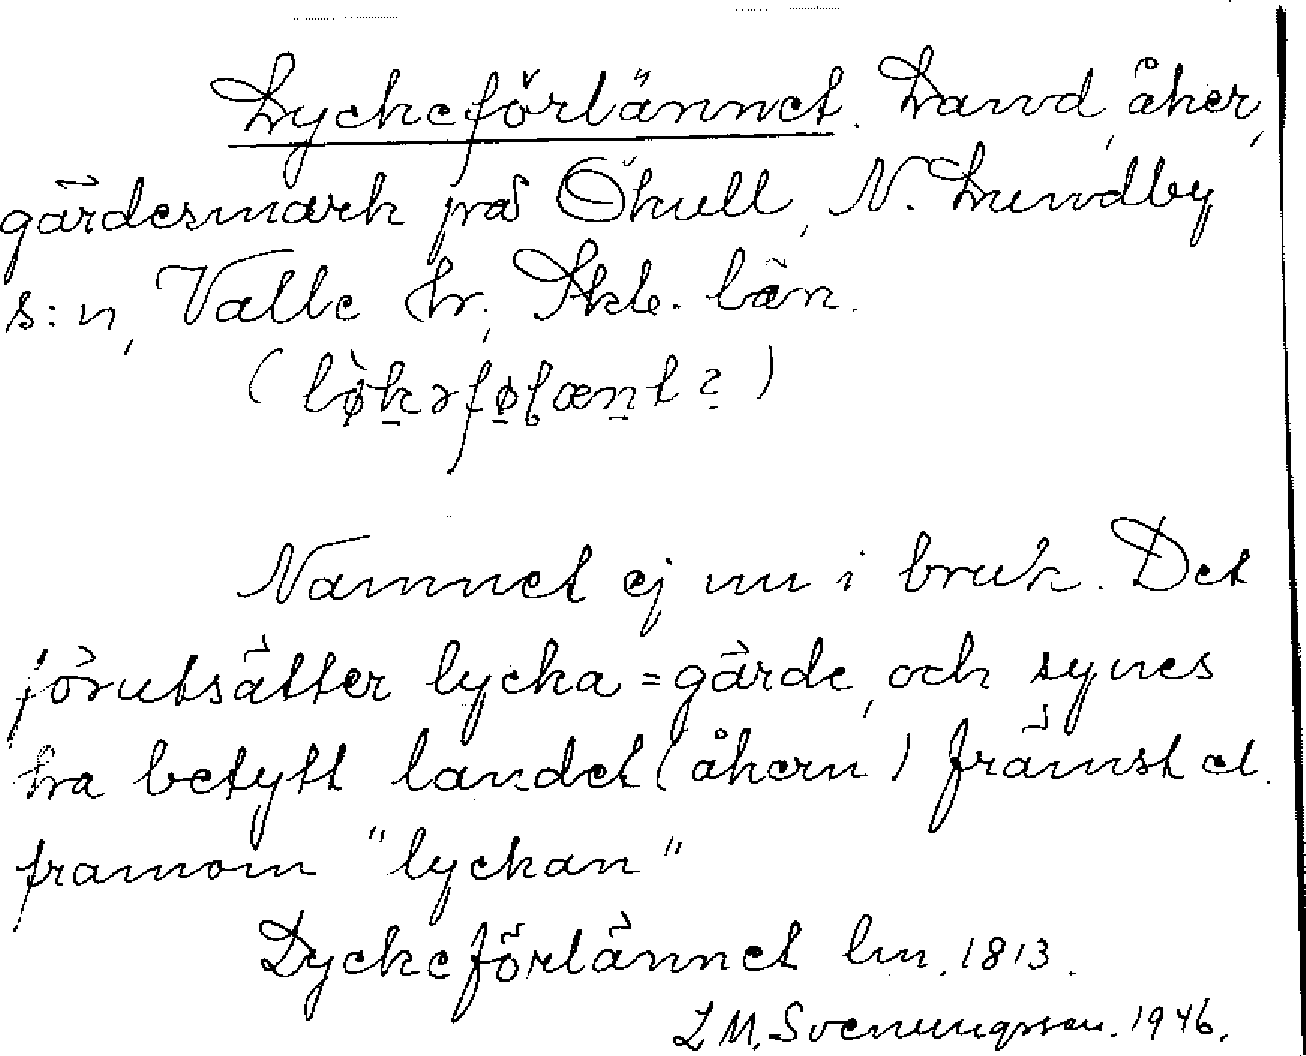 Lyckeförlännet. Land, åker,
gärdesmark påÖkull, N. Lundby
s:n, Valle hr., Skb. län.
(
?)
Namnet ej nu i bruk. Det
förutsätter lycka = gärde, och synes
ha betytt landet (åkern) främst el.
framom "lyckan"
Lyckeförlännet lm. 1813.
L M. Svenungsson. 1946.